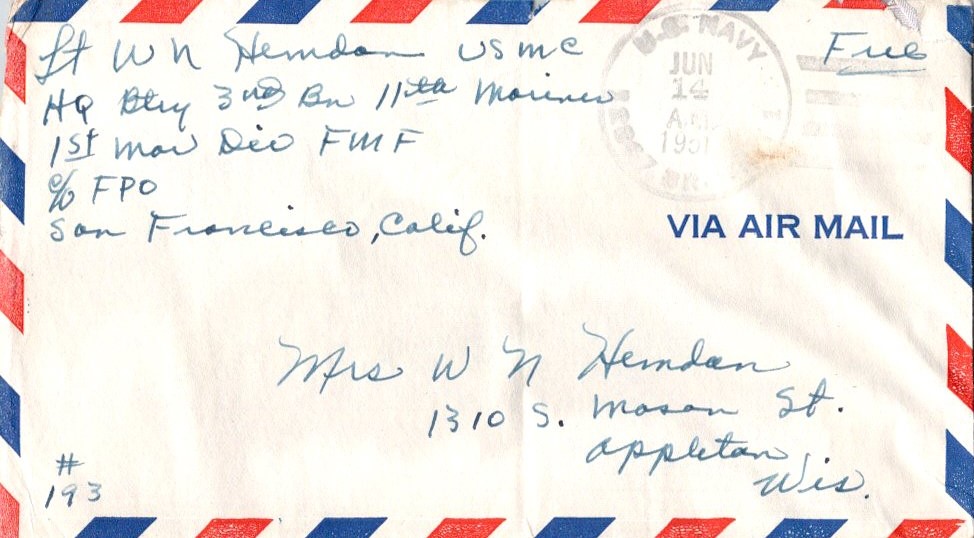 Lt W N Hemdan USMC
Free
HQ Btry 3rd Bn 11th Marines
1st Mar Div FMF
c/o FPO
San Francisco, Calif.
U.S. NAVY
JUN
14
A.M.
1951
VIA AIR MAIL
Mrs W N Hemdan
1310 S. Mason St.
Appleton,
Wis.
#
193